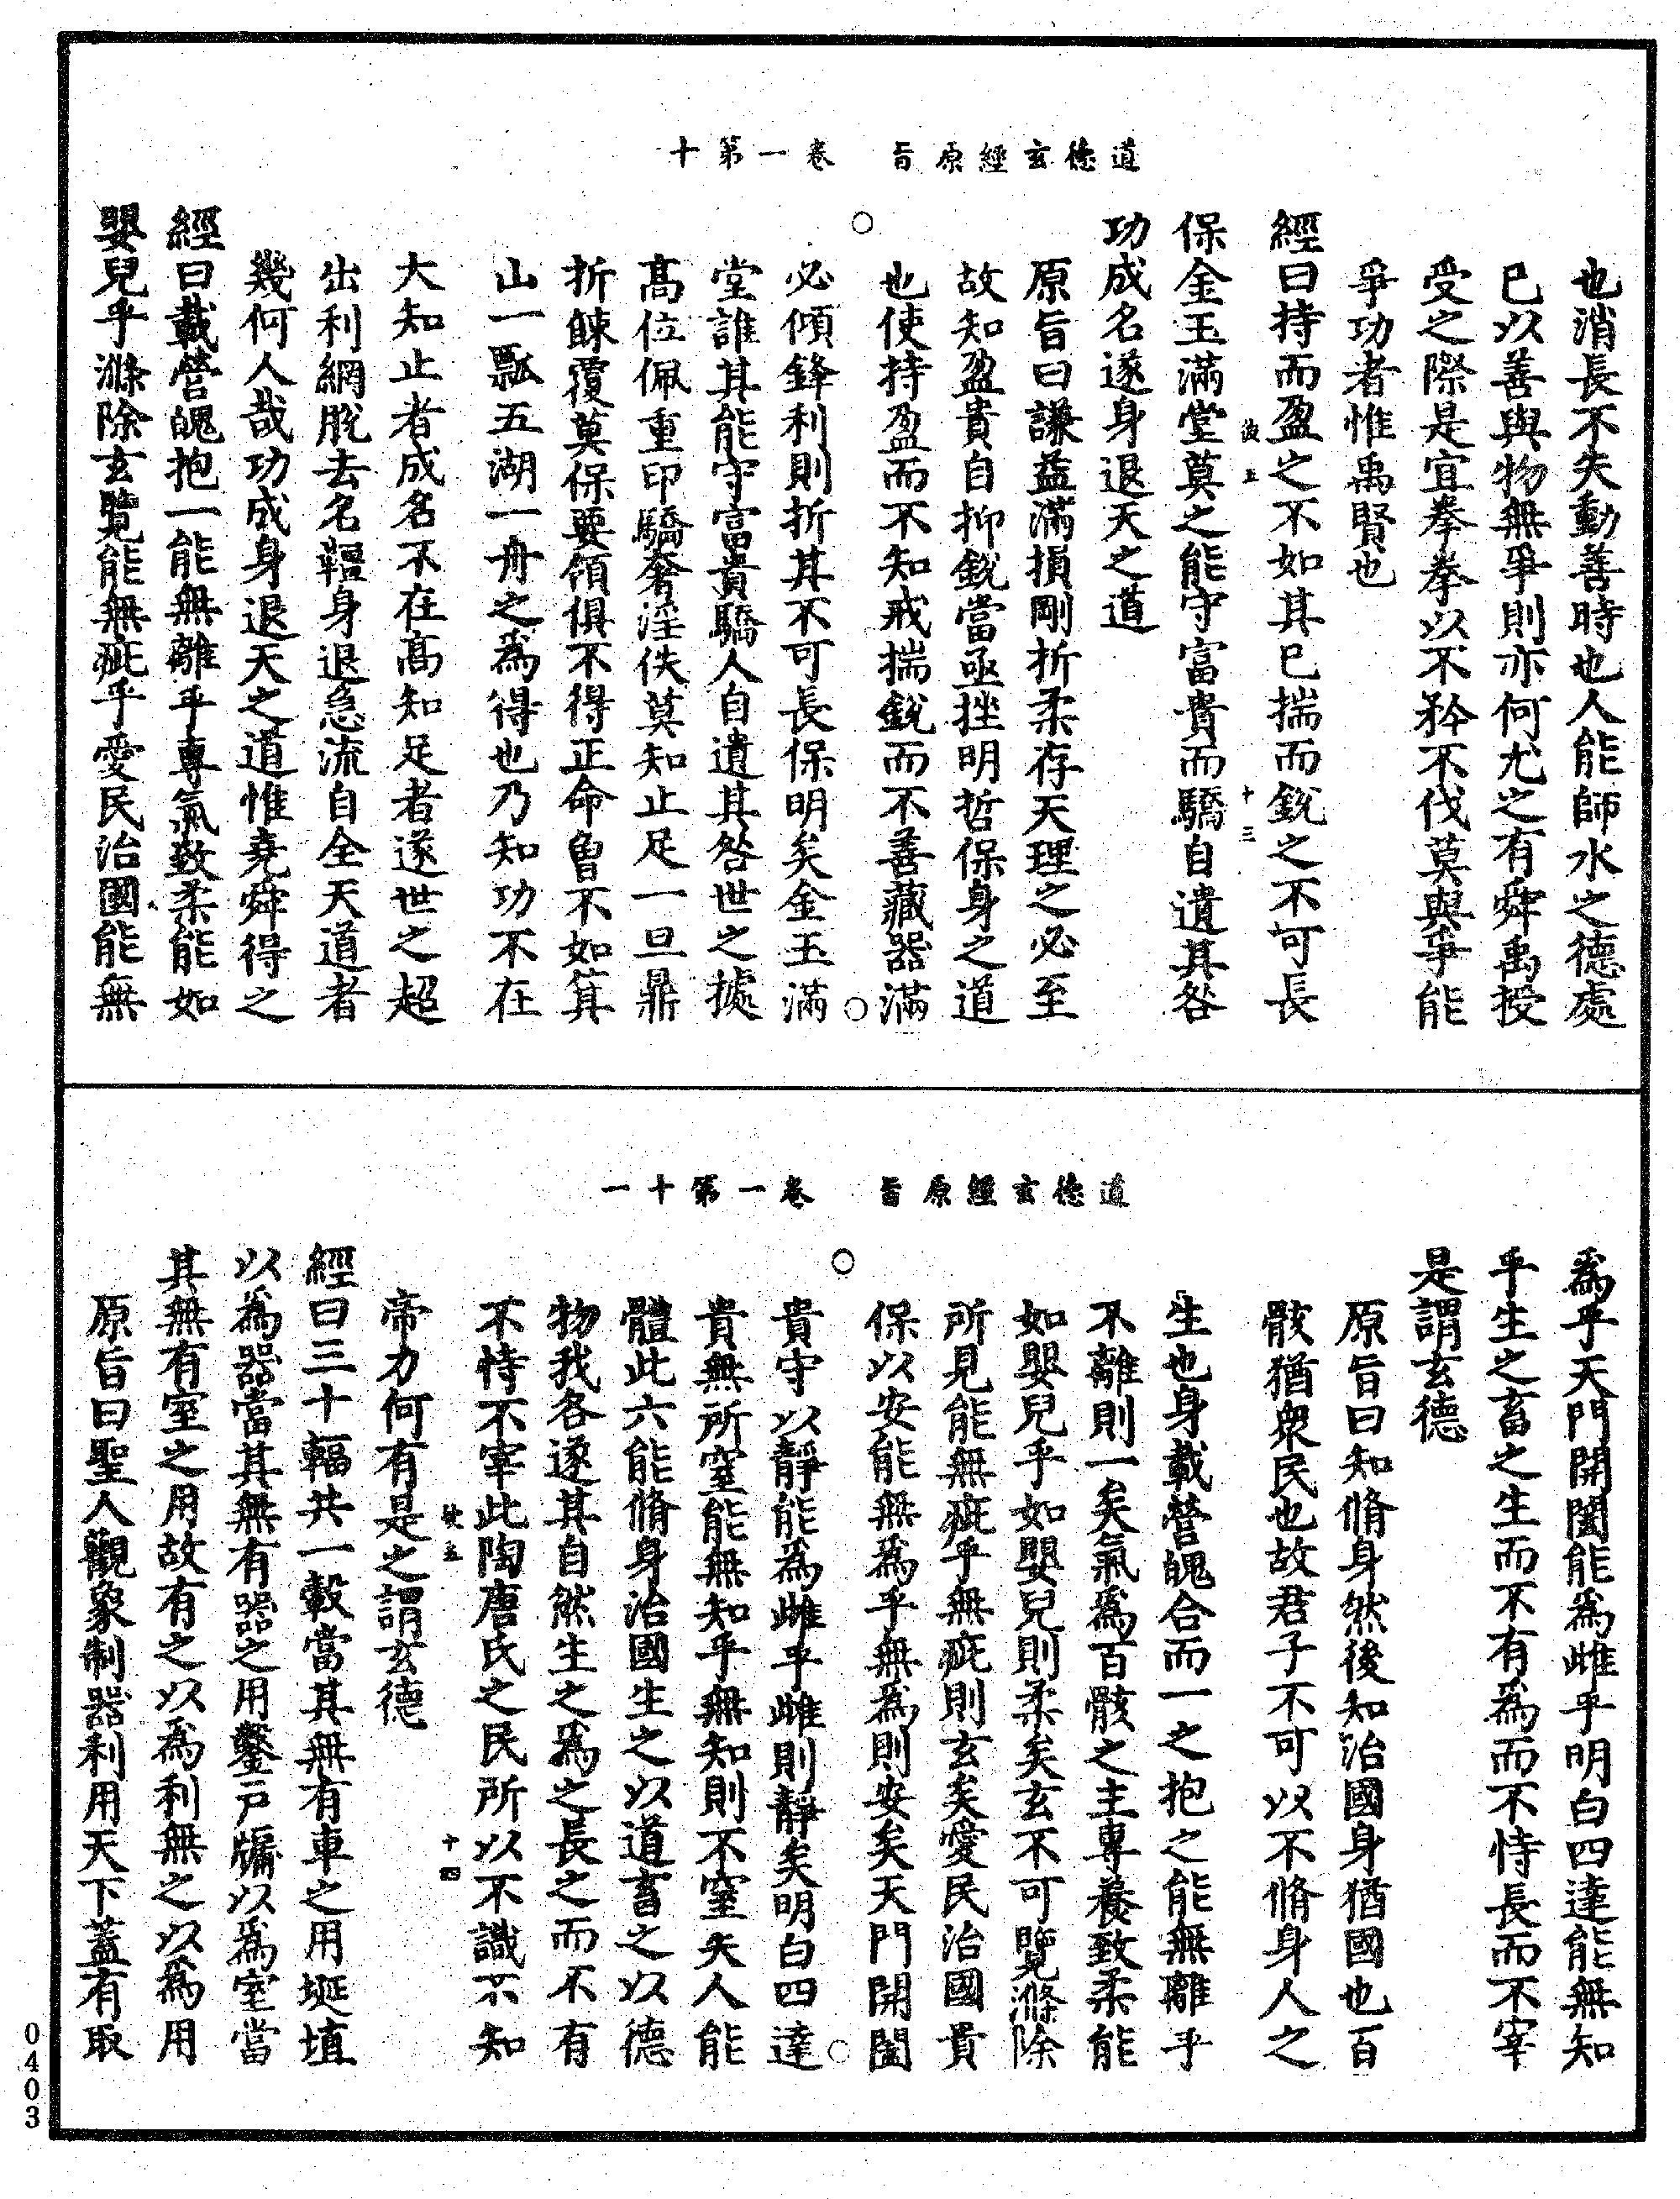 道德玄經原旨　卷一第十
也消長不失動善時也人能師水之德處
已以善與物無爭則亦何尤之有舜禹授
受之際是宜拳拳以不矜不伐莫與爭能
爭功者惟禹賢也
經曰持而盈之不如其已揣而銳之不可長
十三
保金玉滿堂莫之能守富貴而驕自遺其咎
功成名遂身退天之道
原旨曰謙益滿損剛折柔存天理之必至
故知盈貴自抑銳當亟挫明哲保身之道
也使持盈而不知戒揣銳而不善藏器滿
必傾鋒利則折其不可長保明矣金玉滿
堂誰其能守富貴驕人自遺其咎世之據
高位佩重印驕奢淫佚莫知止足一旦鼎
折餗覆莫保要領俱不得正命曾不如箕
山一瓢五湖一舟之為得也乃知功不在
大知止者成名不在高知足者遂世之超
出利網脫去名韁身退急流自全天道者
幾何人哉功成身退天之道惟堯舜得之
經曰載營魄抱一能無離乎專氣致柔能如
嬰兒乎滌除玄覽能無疵乎愛民治國能無
道德玄經原旨　卷一第十一
為乎天門開闔能為雌乎明白四達能無知
乎生之畜之生而不有為而不恃長而不宰
是謂玄德
原旨曰知脩身然後知治國身猶國也百
骸猶衆民也故君子不可以不脩身人之
生也身載營魄合而一之抱之能無離乎
不離則一矣氣為百骸之主專養致柔能
如嬰兒乎如嬰兒則柔矣玄不可覽滌除
所見能無疵乎無疵則玄矣愛民治國貴
保以安能無為乎無為則安矣天門開闔
貴守以靜能為雌乎雌則靜矣明白四達
貴無所窒能無知乎無知則不窒矣人能
體此六能脩身治國生之以道畜之以德
物我各遂其自然生之為之長之而不有
不恃不宰此陶唐氏之民所以不識不知
十四
帝力何有是之謂玄德
經曰三十輻共一轂當其無有車之用埏埴
以為器當其無有器之用鑿戶牖以為室當
其無有室之用故有之以為利無之以為用
原旨曰聖人觀象制器利用天下蓋有取
0403